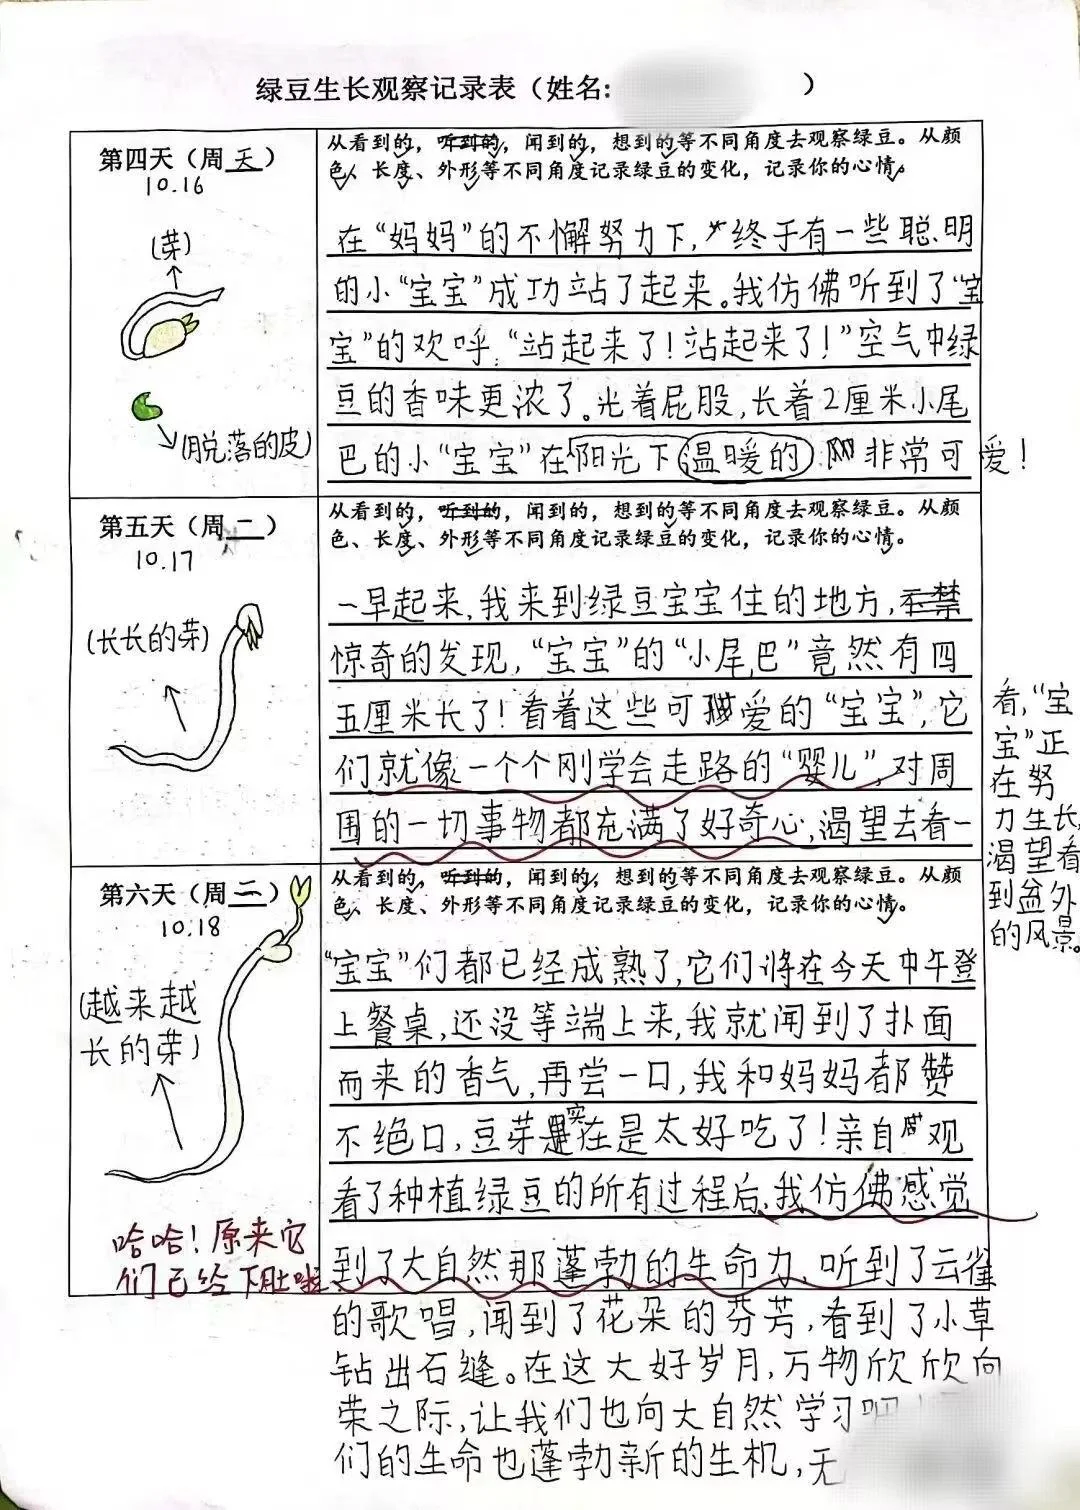 绿豆生长观察记录表（姓名:                ）
第四天（周天）
10.16
(芽)
(脱落的皮)
从看到的，听到的，闻到的，想到的等不同角度去观察绿豆。从颜
色、长度、外形等不同角度记录绿豆的变化，记录你的心情。
在“妈妈”的不懈努力下，终于有一些聪明
的小“宝宝”成功站了起来。我仿佛听到了“宝
宝”的欢呼，“站起来了！站起来了！”空气中绿
豆的香味更浓了。光着屁股，长着2厘米小尾
巴的小“宝宝”在阳光下温暖的非常可爱！
第五天（周二）
10.17
(长长的芽)
从看到的，听到的，闻到的，想到的等不同角度去观察绿豆。从颜
色、长度、外形等不同角度记录绿豆的变化，记录你的心情。
一早起来，我来到绿豆宝宝住的地方，不禁
惊奇的发现，“宝宝”的“小尾巴”竟然有四
五厘米长了！看着这些可爱的“宝宝”，它
们就像一个个刚学会走路的“婴儿”，对周
围的一切事物都充满了好奇心，渴望去看一
看，“宝
宝”正
在努
力生长，
渴望看
到盆外
的风景。
第六天（周三）
10.18
(越来越
长的芽)
从看到的，听到的，闻到的，想到的等不同角度去观察绿豆。从颜
色、长度、外形等不同角度记录绿豆的变化，记录你的心情。
“宝宝”们都已经成熟了，它们将在今天中午登
上餐桌，还没等端上来，我就闻到了扑面
而来的香气，再尝一口，我和妈妈都赞
不绝口，豆芽实在是太好吃了！亲自观
看了种植绿豆的所有过程后，我仿佛感觉
到了大自然那蓬勃的生命力，听到了云雀
的歌唱，闻到了花朵的芬芳，看到了小草
钻出石缝。在这大好岁月，万物欣欣向
荣之际，让我们也向大自然学习吧
们的生命也蓬勃新的生机，无
哈哈！原来它
们已经下肚啦